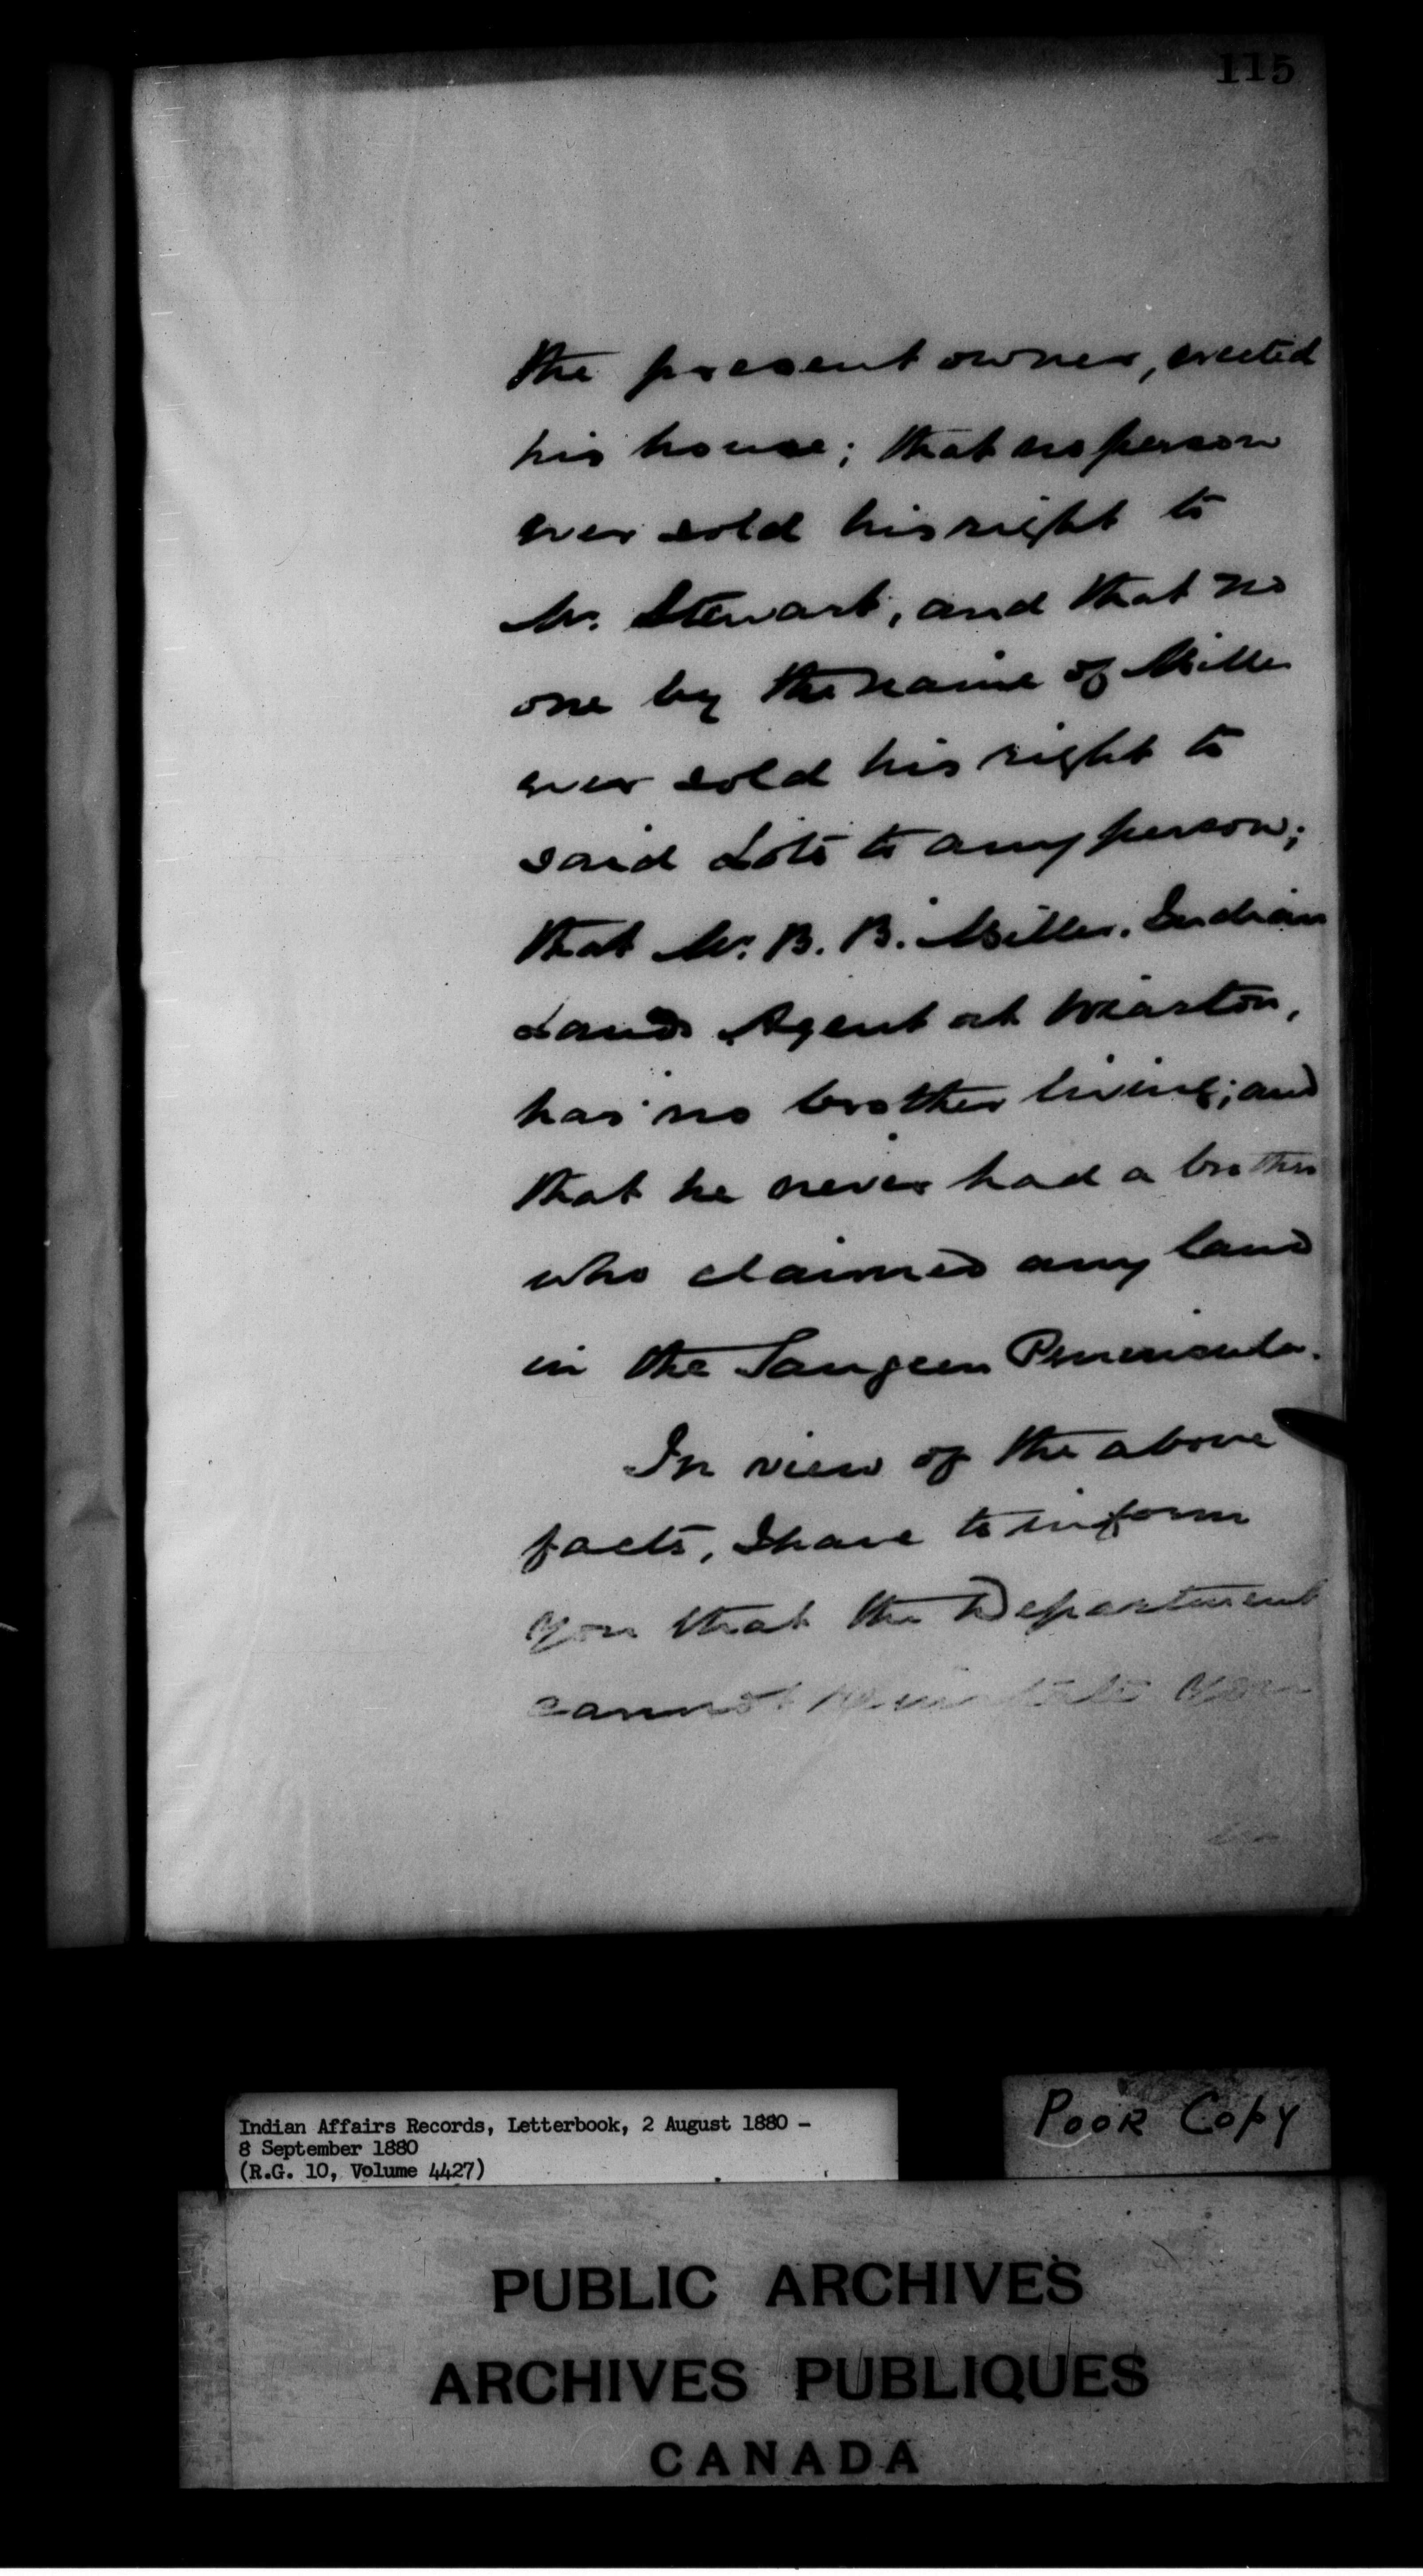 115
the present owner, erected
his house; that no person
ever sold his right to
Mr. Stewart, and that no
one by the name of Miller
ever sold his right to
said Lots to any person;
that Mr. B. B. Miller, Indian
Lands Agent at Wiarton,
has no brother living; and
that he never had a brother
who claimed any land
in the Saugeen Peninsula.
In view of the above
facts, I have to inform
you that the Department
cannot reinstate you
Indian Affairs Records, Letterbook, 2 August 1880 -
8 September 1880
(R.G. 10, Volume 4427)
POOR COPY
PUBLIC ARCHIVES
ARCHIVES PUBLIQUES
CANADA